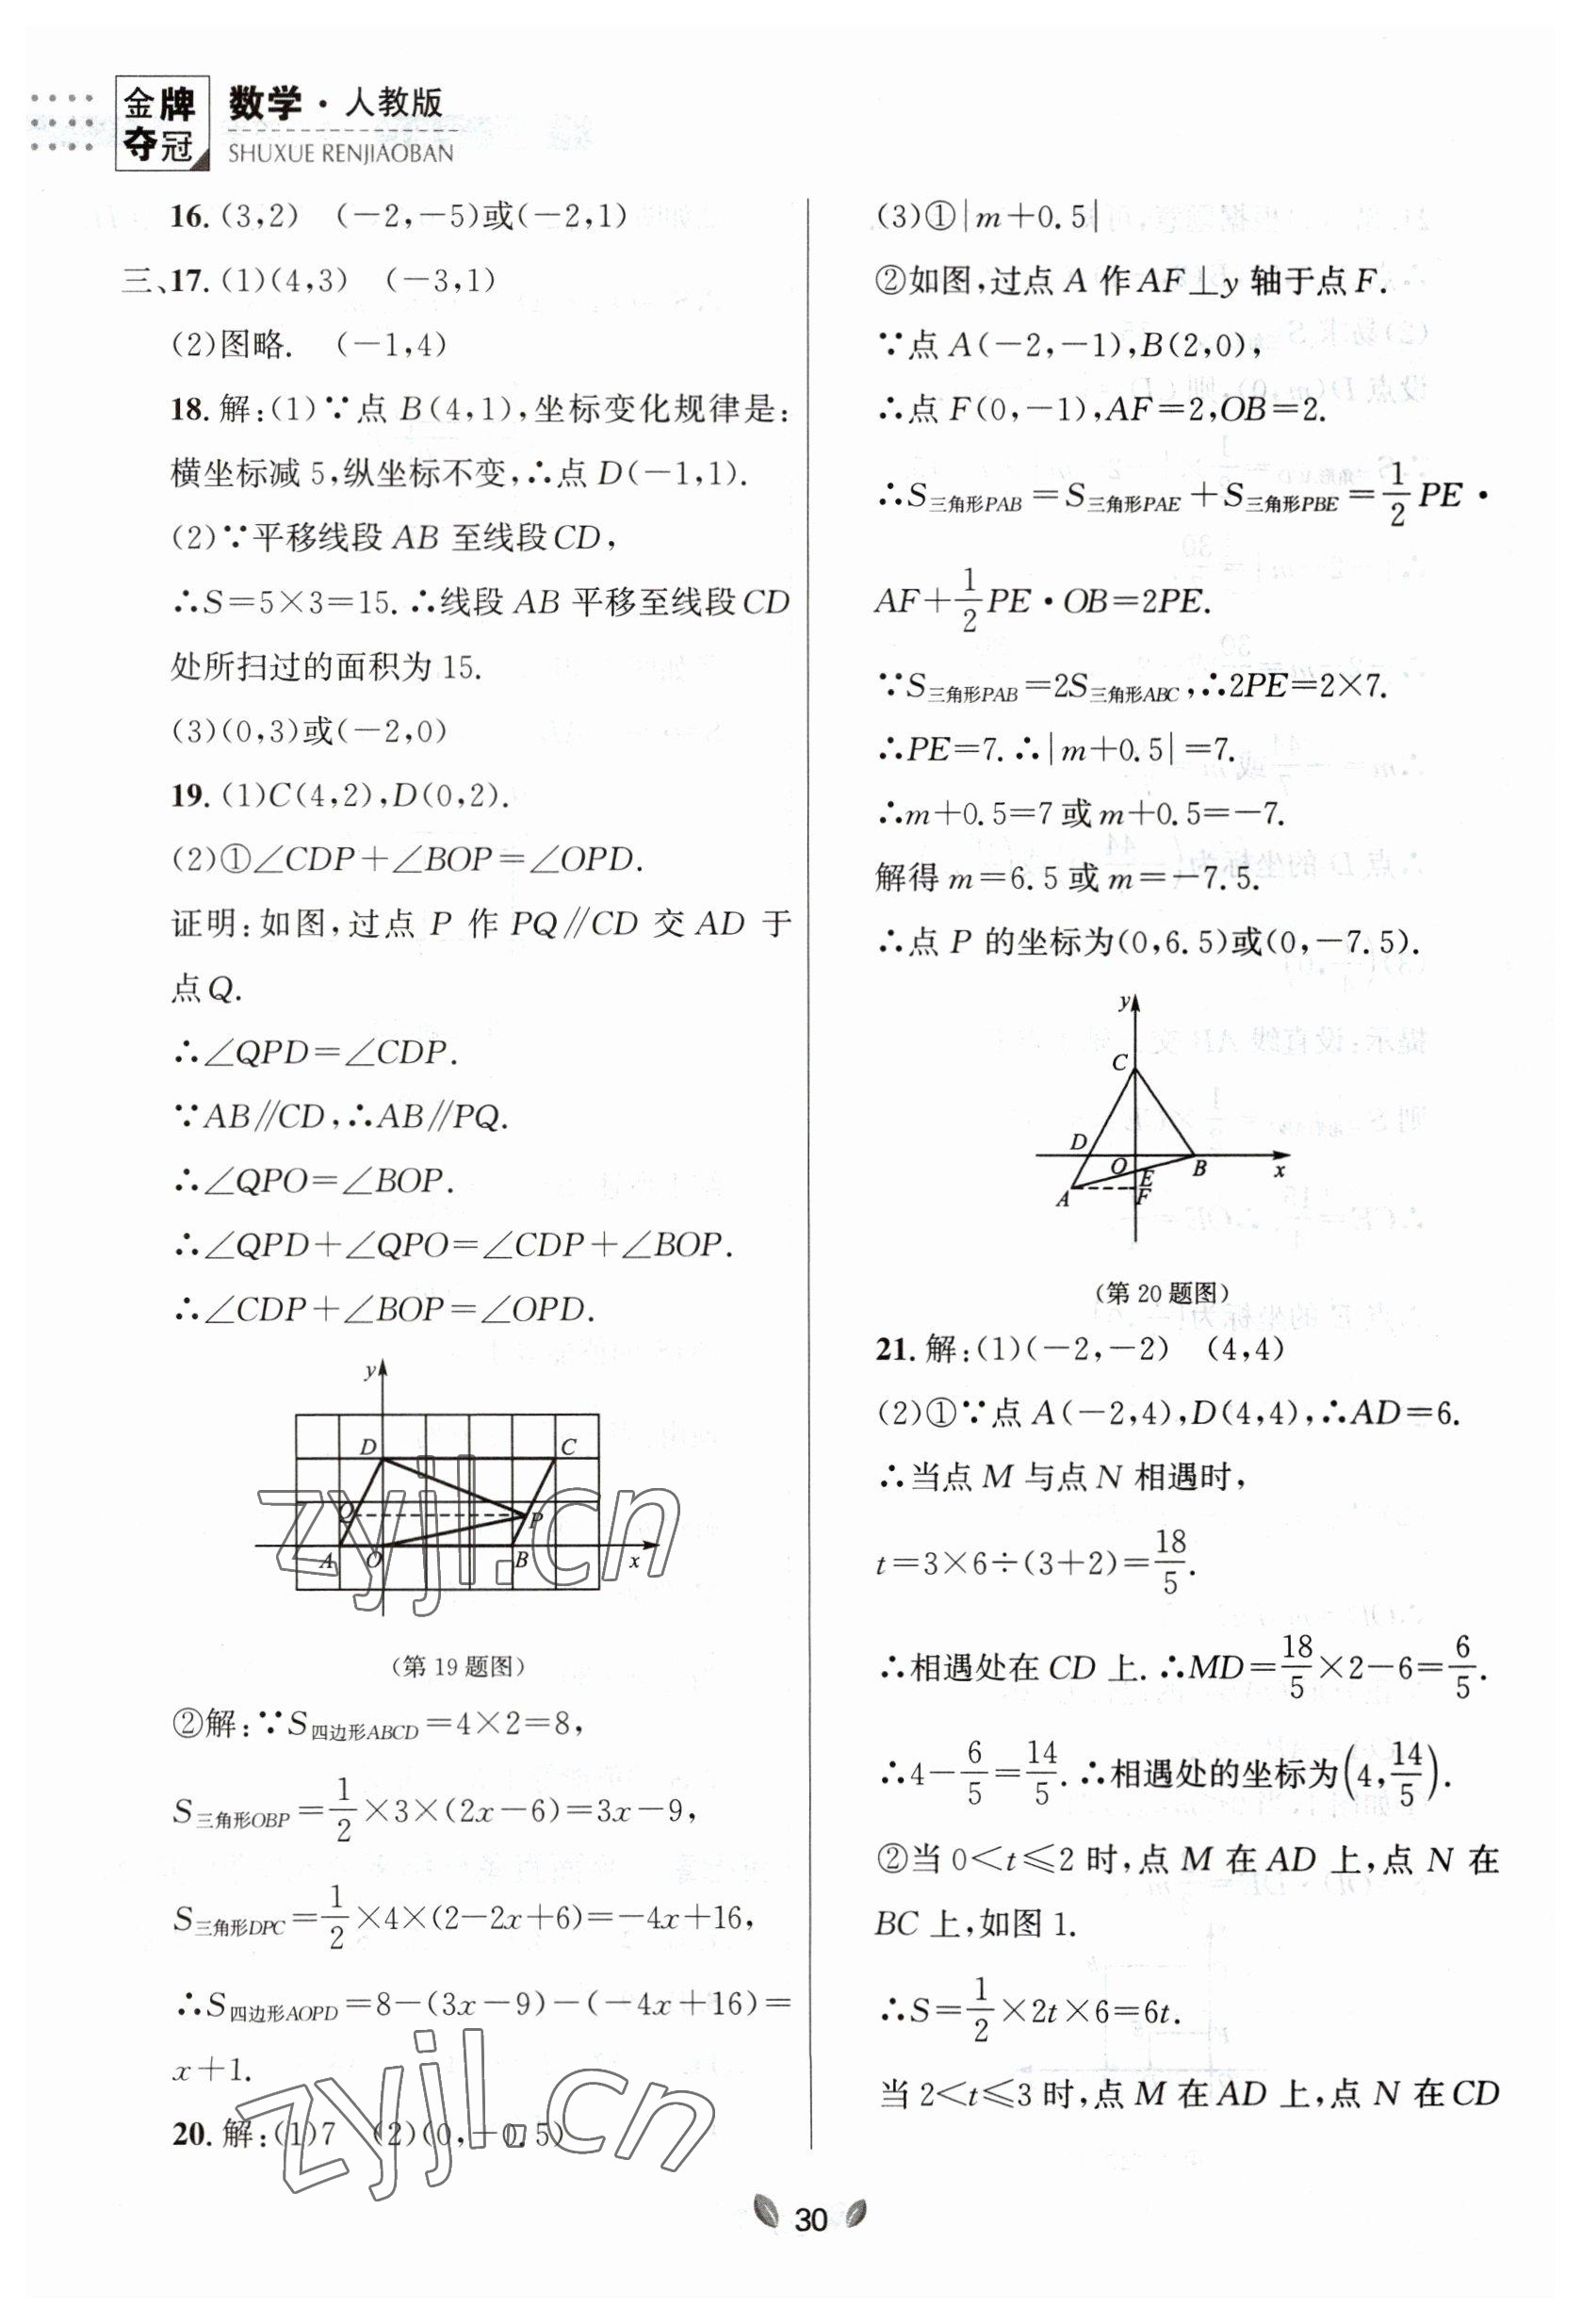 金牌夺冠
数学·人教版
SHUXUE RENJIAOBAN
16. (3,2) (-2,-5)或(-2,1)
三、17. (1)(4,3) (-3,1)
(2)图略. (-1,4)
18. 解:(1)∵点 B(4,1),坐标变化规律是:
横坐标减 5,纵坐标不变,∴点 D(-1,1).
(2)∵平移线段 AB 至线段CD,
∴S=5×3=15. ∴线段 AB 平移至线段CD
处所扫过的面积为 15.
(3)(0,3)或(-2,0)
19. (1)C(4,2),D(0,2).
(2)①∠CDP+∠BOP=∠OPD.
证明:如图,过点 P 作 PQ∥CD 交 AD 于
点Q.
∴∠QPD=∠CDP.
∵AB∥CD,∴AB∥PQ.
∴∠QPO=∠BOP.
∴∠QPD+∠QPO=∠CDP+∠BOP.
∴∠CDP+∠BOP=∠OPD.
y
D C
Q P
A O B x
(第 19 题图)
②解:∵S四边形ABCD=4×2=8,
S三角形OBP=1/2×3×(2x-6)=3x-9,
S三角形DPC=1/2×4×(2-2x+6)=-4x+16,
∴S四边形AOPD=8-(3x-9)-(-4x+16)=
x+1.
20. 解:(1)7 (2)(0,-0.5)
(3)①|m+0.5|
②如图,过点 A 作 AF⊥y 轴于点 F.
∵点 A(-2,-1),B(2,0),
∴点 F(0,-1),AF=2,OB=2.
∴S三角形PAB=S三角形PAE+S三角形PBE=1/2 PE·
AF+1/2 PE·OB=2PE.
∵S三角形PAB=2S三角形ABC,∴2PE=2×7.
∴PE=7. ∴|m+0.5|=7.
∴m+0.5=7 或 m+0.5=-7.
解得 m=6.5 或 m=-7.5.
∴点 P 的坐标为(0,6.5)或(0,-7.5).
y
C
D
O E B x
A F
(第 20 题图)
21. 解:(1)(-2,-2) (4,4)
(2)①∵点 A(-2,4),D(4,4),∴AD=6.
∴当点 M 与点 N 相遇时,
t=3×6÷(3+2)=18/5.
∴相遇处在 CD 上. ∴MD=18/5×2-6=6/5.
∴4-6/5=14/5. ∴相遇处的坐标为(4,14/5).
②当 0<t≤2 时,点 M 在 AD 上,点 N 在
BC 上,如图 1.
∴S=1/2×2t×6=6t.
当 2<t≤3 时,点 M 在 AD 上,点 N 在 CD
30
zyjl.cn
zyjl.cn